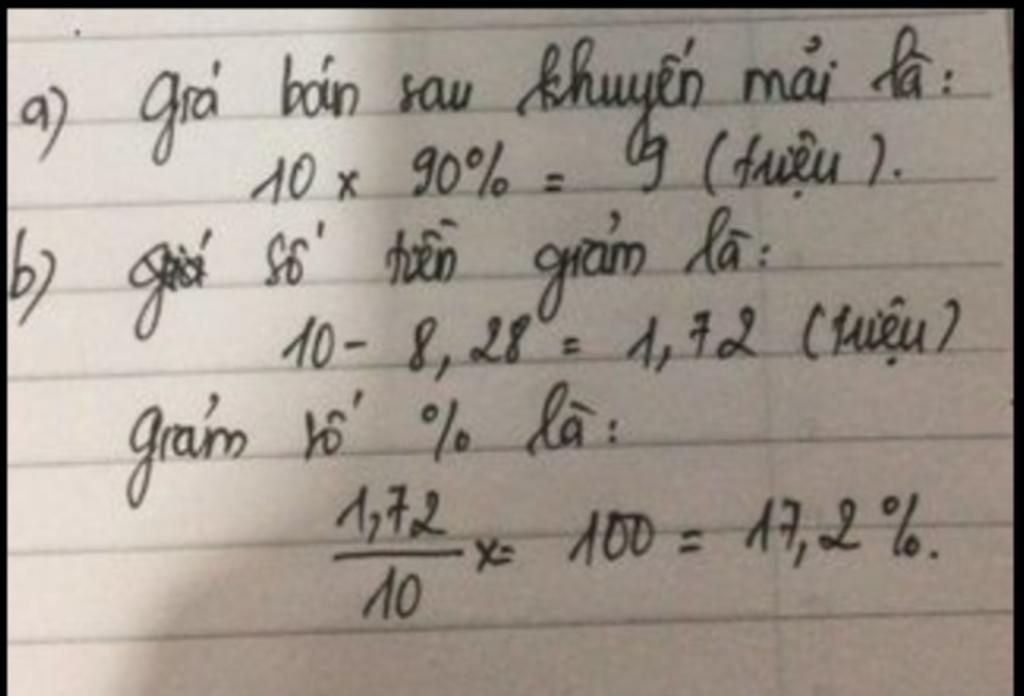 a) giá bán sau khuyến mải là:
10 x 90% = 9 (triệu).
b) giá số tiền giảm là:
10 - 8,28 = 1,72 (triệu)
giảm số % là:
1,72
/10 x= 100 = 17,2%.